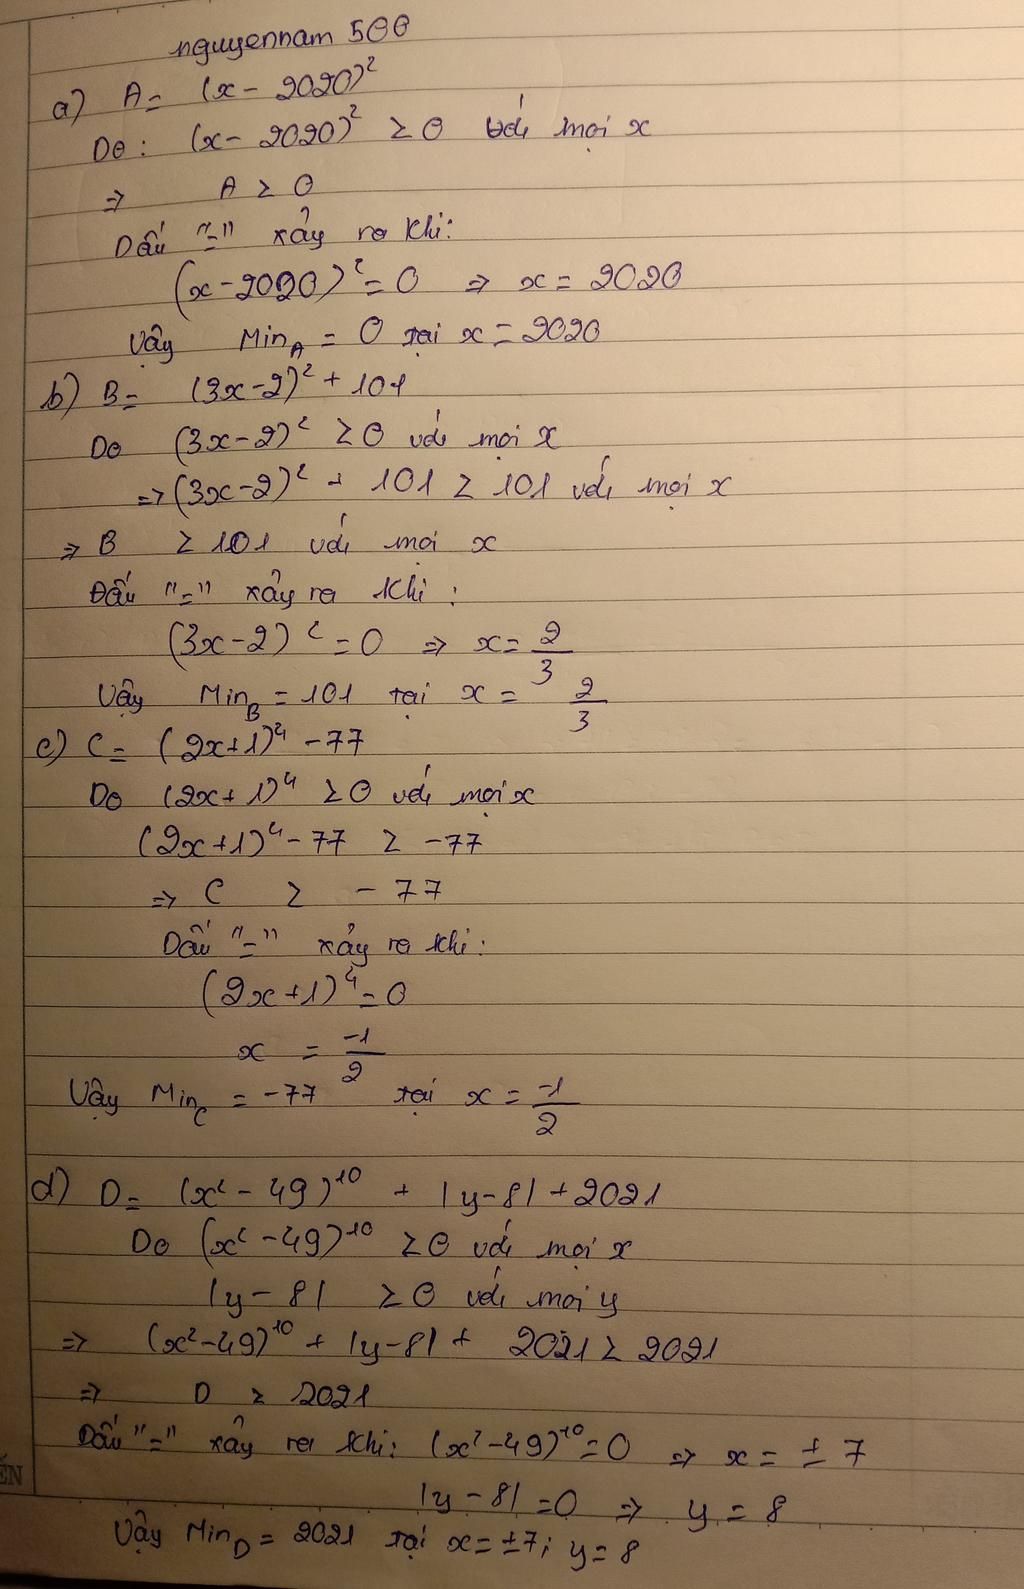 nguyennam 500
a) A = (x - 2020)²
Do: (x - 2020)² ≥ 0 với mọi x
=> A ≥ 0
Dấu "=" xảy ra khi:
(x - 2020)² = 0 => x = 2020
Vậy Min_A = 0 tại x = 2020
b) B = (3x - 2)² + 101
Do (3x - 2)² ≥ 0 với mọi x
=> (3x - 2)² + 101 ≥ 101 với mọi x
=> B ≥ 101 với mọi x
Dấu "=" xảy ra khi:
(3x - 2)² = 0 => x = 2/3
Vậy Min_B = 101 tại x = 2/3
c) C = (2x + 1)⁴ - 77
Do (2x + 1)⁴ ≥ 0 với mọi x
(2x + 1)⁴ - 77 ≥ -77
=> C ≥ -77
Dấu "=" xảy ra khi:
(2x + 1)⁴ = 0
x = -1/2
Vậy Min_C = -77 tại x = -1/2
d) D = (x² - 49)¹⁰ + |y - 8| + 2021
Do (x² - 49)¹⁰ ≥ 0 với mọi x
|y - 8| ≥ 0 với mọi y
=> (x² - 49)¹⁰ + |y - 8| + 2021 ≥ 2021
=> D ≥ 2021
Dấu "=" xảy ra khi: (x² - 49)¹⁰ = 0 => x = ± 7
|y - 8| = 0 => y = 8
Vậy Min_D = 2021 tại x = ±7; y = 8